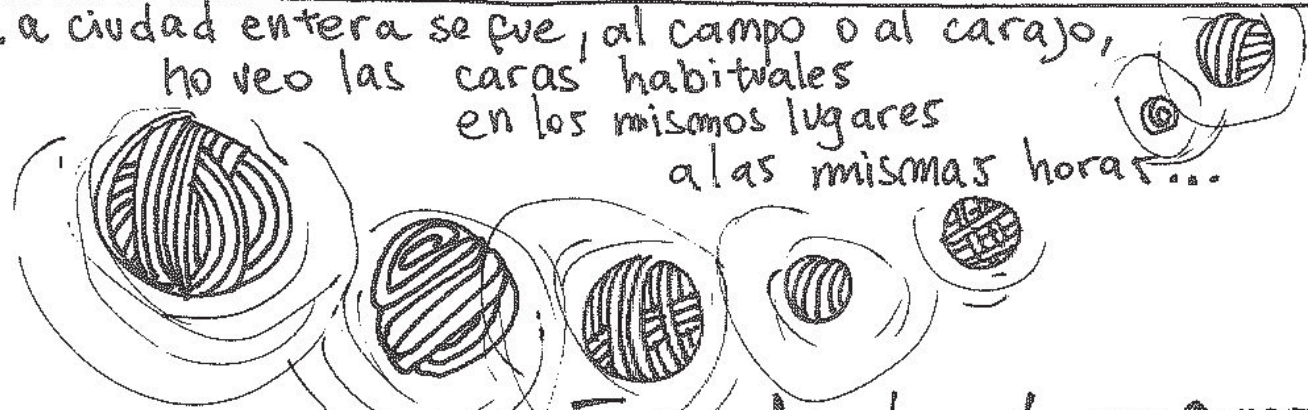 a ciudad entera se fue, al campo o al carajo,
no veo las caras habituales
en los mismos lugares
a las mismas horas...